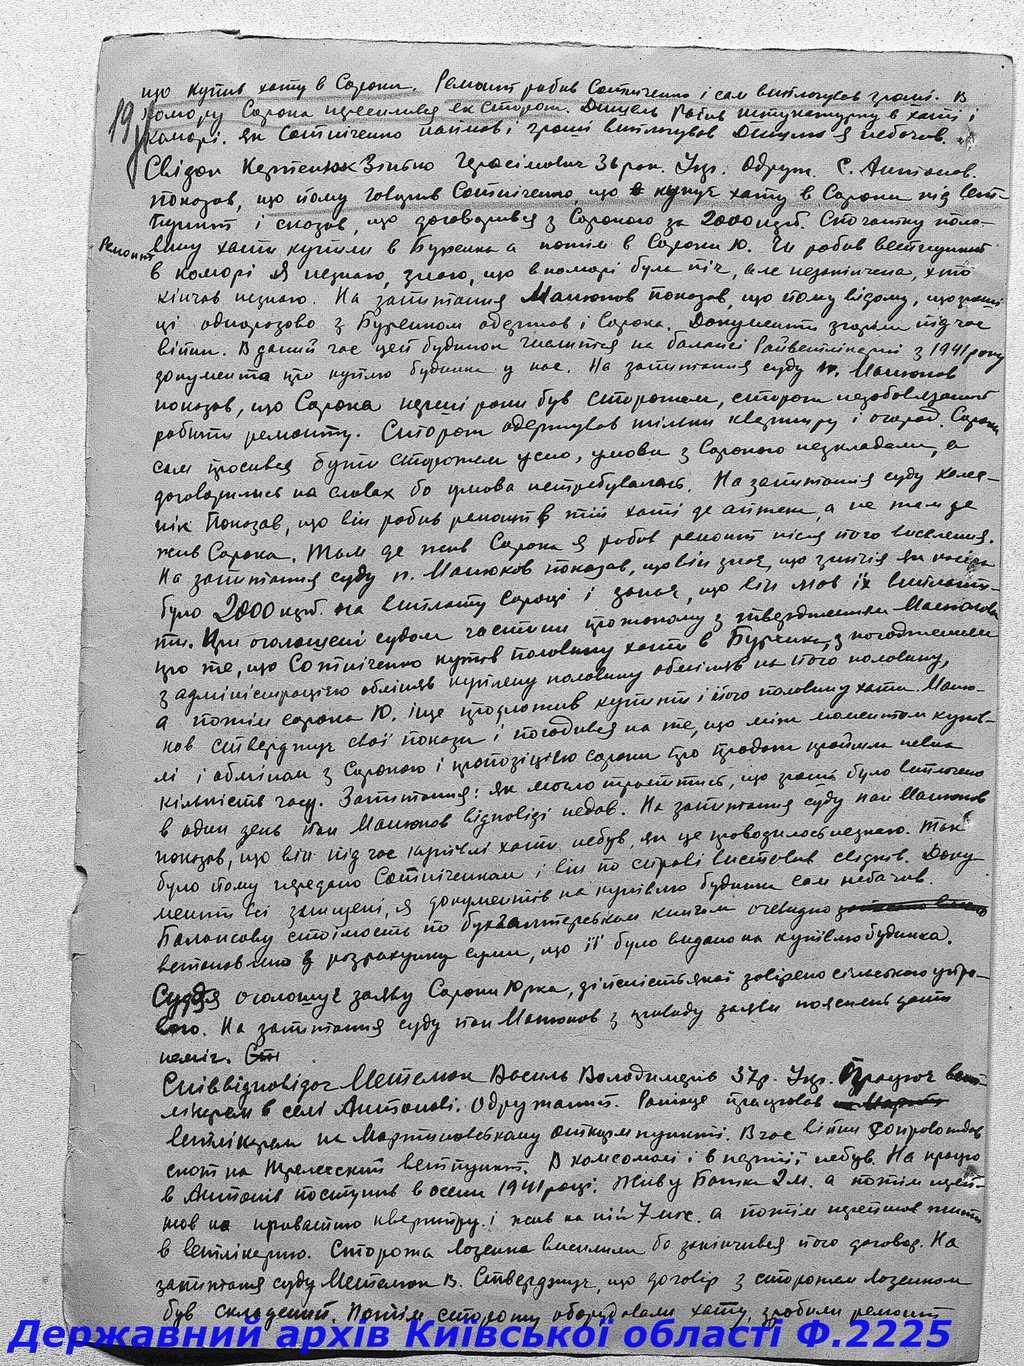 що купив хату в Сороки. Ремонт робив Сотніченко і сам виплочував гроші. В
комору Сорока переселився як сторож. Дицель робив штукатурку в хаті і
19 коморі. Як Сотніченко наймав і гроші виплочував Дицелю я небачив.
Свідок Зінько Герасімович 36 рок. Укр. Одруж. С. Антонов.
показав, що йому говорив Сотніченко, що купує хату в Сороки під вет-
пункт і сказав, що договорився з Сорокою за 2000 крб. Спочатку поло-
Ремонт вину хати купили в Буренка а потім в Сороки Ю. Чи робив ветпункт
в коморі я незнаю, знаю, що в коморі була піч, але незакінчена, хто
кінчав незнаю. На запитання Манюков показав, що йому відомо, що гроші
ці одноразово з Буренком одержав і Сорока. Документи згоріли під час
війни. В даний час цей будинок числится на балансі Райветлікарні з 1941 року
документа про куплю будинка у нас. На запитання суду п. Манюков
показав, що Сорока перші роки був сторожем, сторож незобовязаний
робити ремонту. Сторож одержував тільки квартиру і огород. Сорока
сам просився бути сторожем усно, умови з Сорокою нескладали, а
договорились на словах бо умова непотребувалась. На запитання суду
показав, що він робив ремонт в тій хаті де аптека, а не там де
жив Сорока. Там де жив Сорока я робив ремонт після його виселення.
На запитання суду п. Манюков показав, що він знає, що
було 2000 крб. на виплату Сороці і знає, що він мав їх виплати-
ти. При оголошені судом частини протоколу з твердженням Манюкова
про те, що Сотніченко купив половину хати в Буренка, з погодженням
з адміністрацією обміняв куплену половину на його половину,
а потім Сорока Ю. іще продложив купити і його половину хати. Маню-
ков стверджує свої покази і погодився на те, що між моментом купів-
лі і обміном з Сорокою і пропозіцією Сороки про продаж пройшла певна
кількість часу. Запитання: як могло трапитись, що гроші було виплочено
в один день пан Манюков відповіді недав. На запитання суду пан Манюков
показав, що він під час купівлі хати небув, як це проводилось незнаю. Так
було йому передано Сотніченком і він по справі виставив свідків. Доку
менти всі знищені, я документів на купівлю будинка сам небачив.
Балансову стоімость по бухгалтерським книгам очевидно
встановлено з розрахунку суми, що її було видано на купівлю будинка.
Суддя оголошує заяву Сороки Юрка, дійсність якої завірено сільською упра-
вою. На запитання суду пан Манюков з приводу заяви пояснень дати
неміг.
Співвідповідач Метелюк Василь Володимирів 37 р. Укр. Працює вет-
лікарем в селі Антонові. Одружений. Раніше працював
ветлікарем на Мартиновському пункті. В час війни сопроводжав
скот на ветпункт. В комсомолі і в партії небув. На працю
в Антонів поступив в осени 1941 році. Жив у Батька 2 м. а потім перей-
шов на приватню квартиру і жив на ній 7 міс. а потім перейшов жити
в ветлікарню. Сторожа Лозенка виселили бо закінчився його договор. На
запитання суду Метелюк В. Стверджує, що договір з сторожем Лозенком
був складений. Потім сторожу оборудовали хату, зробили ремонт
Державний архів Київської області Ф.2225